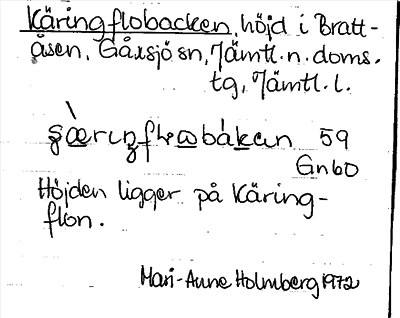 Käringflobacken, höjd i Bratt-
åsen, Gåxsjö sn, Jämtl. n. doms.
tg, Jämtl. l.
59
Gn60
Höjden ligger på Käring-
flon.
Mari-Anne Holmberg 1972